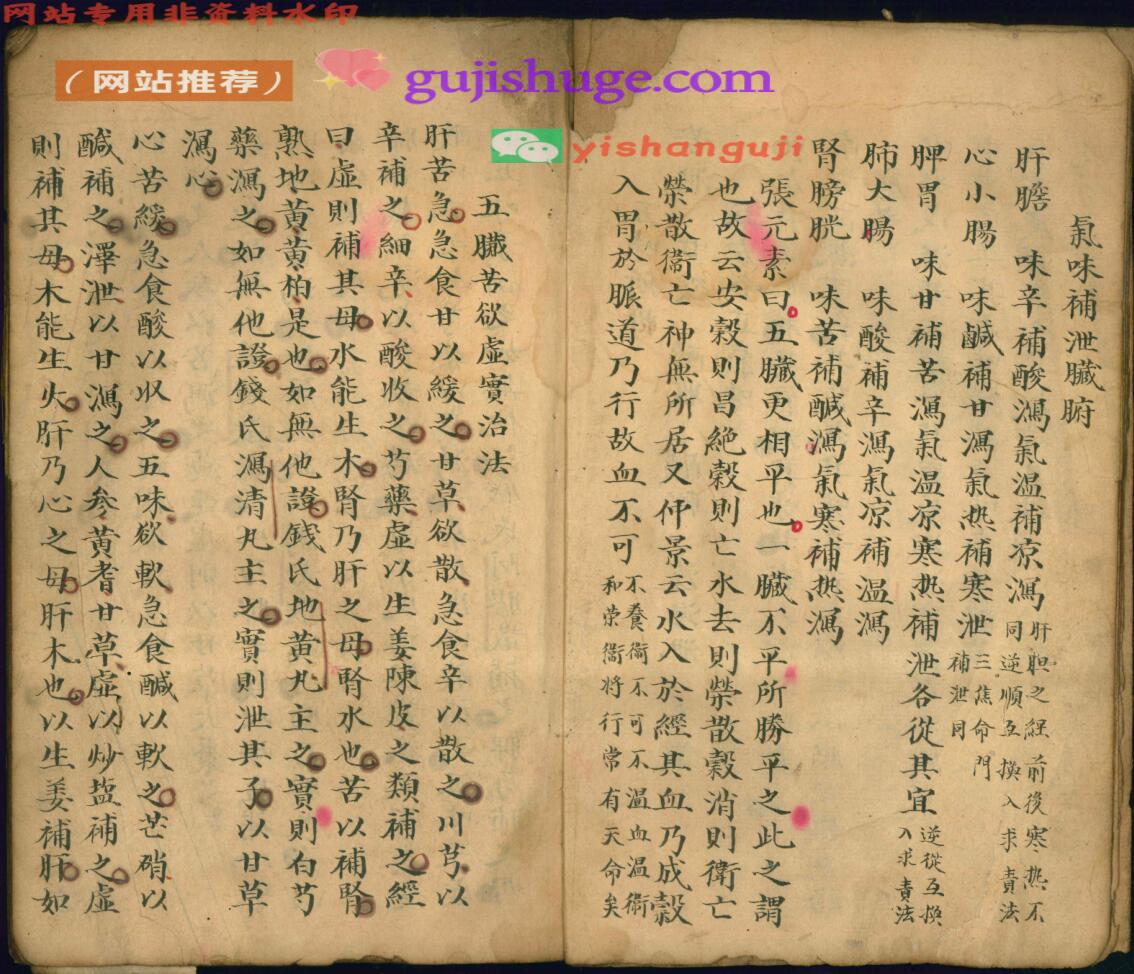 网站专用非资料水印
（网站推荐）
gujishuge.com
yishanguji
氣味補泄臟腑
肝膽 味辛補酸瀉氣温補凉瀉 肝胆之經前後寒热不
同逆順互換入求責法
心小腸 味鹹補甘瀉氣热補寒泄 三焦命門
補泄同
脾胃 味甘補苦瀉氣温凉寒热補泄各從其宜 逆從互換
入求責法
肺大腸 味酸補辛瀉氣凉補温瀉
腎膀胱 味苦補鹹瀉氣寒補热瀉
張元素曰五臟更相平也一臟不平所勝平之此之謂
也故云安穀則昌絶穀則亡水去則榮散穀消則衛亡
榮散衞亡神無所居又仲景云水入於經其血乃成穀
入胃於脈道乃行故血不可 不養衞不可不温血温衞
和荣衞将行常有天命矣
五臟苦欲虛實治法
肝苦急急食甘以緩之甘草欲散急食辛以散之川芎以
辛補之細辛以酸收之芍藥虛以生姜陳皮之類補之經
曰虛則補其母水能生木腎乃肝之母腎水也苦以補腎
熟地黄黄柏是也如無他證錢氏地黄丸主之實則白芍
藥瀉之如無他證錢氏瀉清丸主之實則泄其子以甘草
瀉心
心苦緩急食酸以収之五味欲軟急食鹹以軟之芒硝以
鹹補之澤泄以甘瀉之人参黄耆甘草虛以炒盐補之虛
則補其母木能生火肝乃心之母肝木也以生姜補肝如